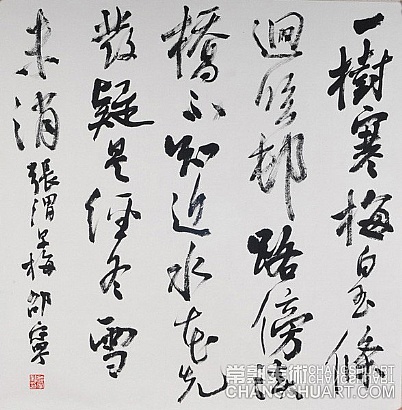 一樹寒梅白玉條
迥臨邨路傍溪
橋不知近水花先
發疑是經冬雪
未消
張謂早梅 邵
常熟美術
CHANGSHUART